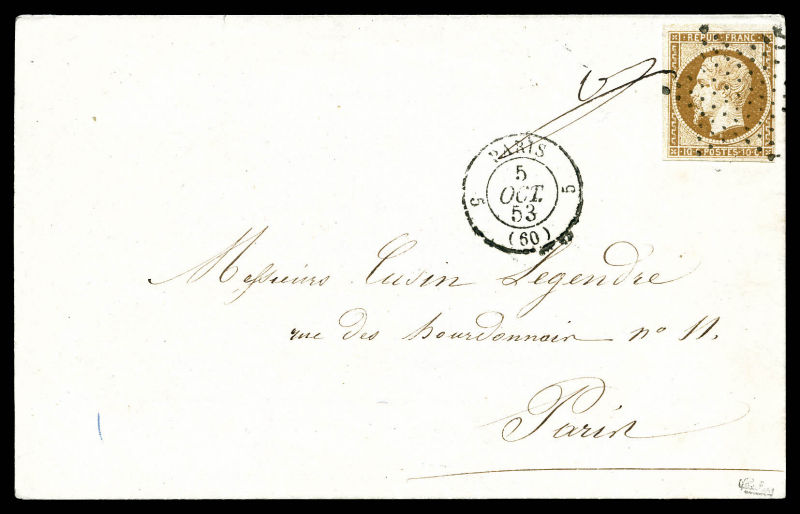 REPUB. FRANC.
10 c. POSTES 10 c.
PARIS
5
OCT.
53
(60)
5
5
Messieurs Cusin Legendre
rue des bourdonnais n° 11.
Paris